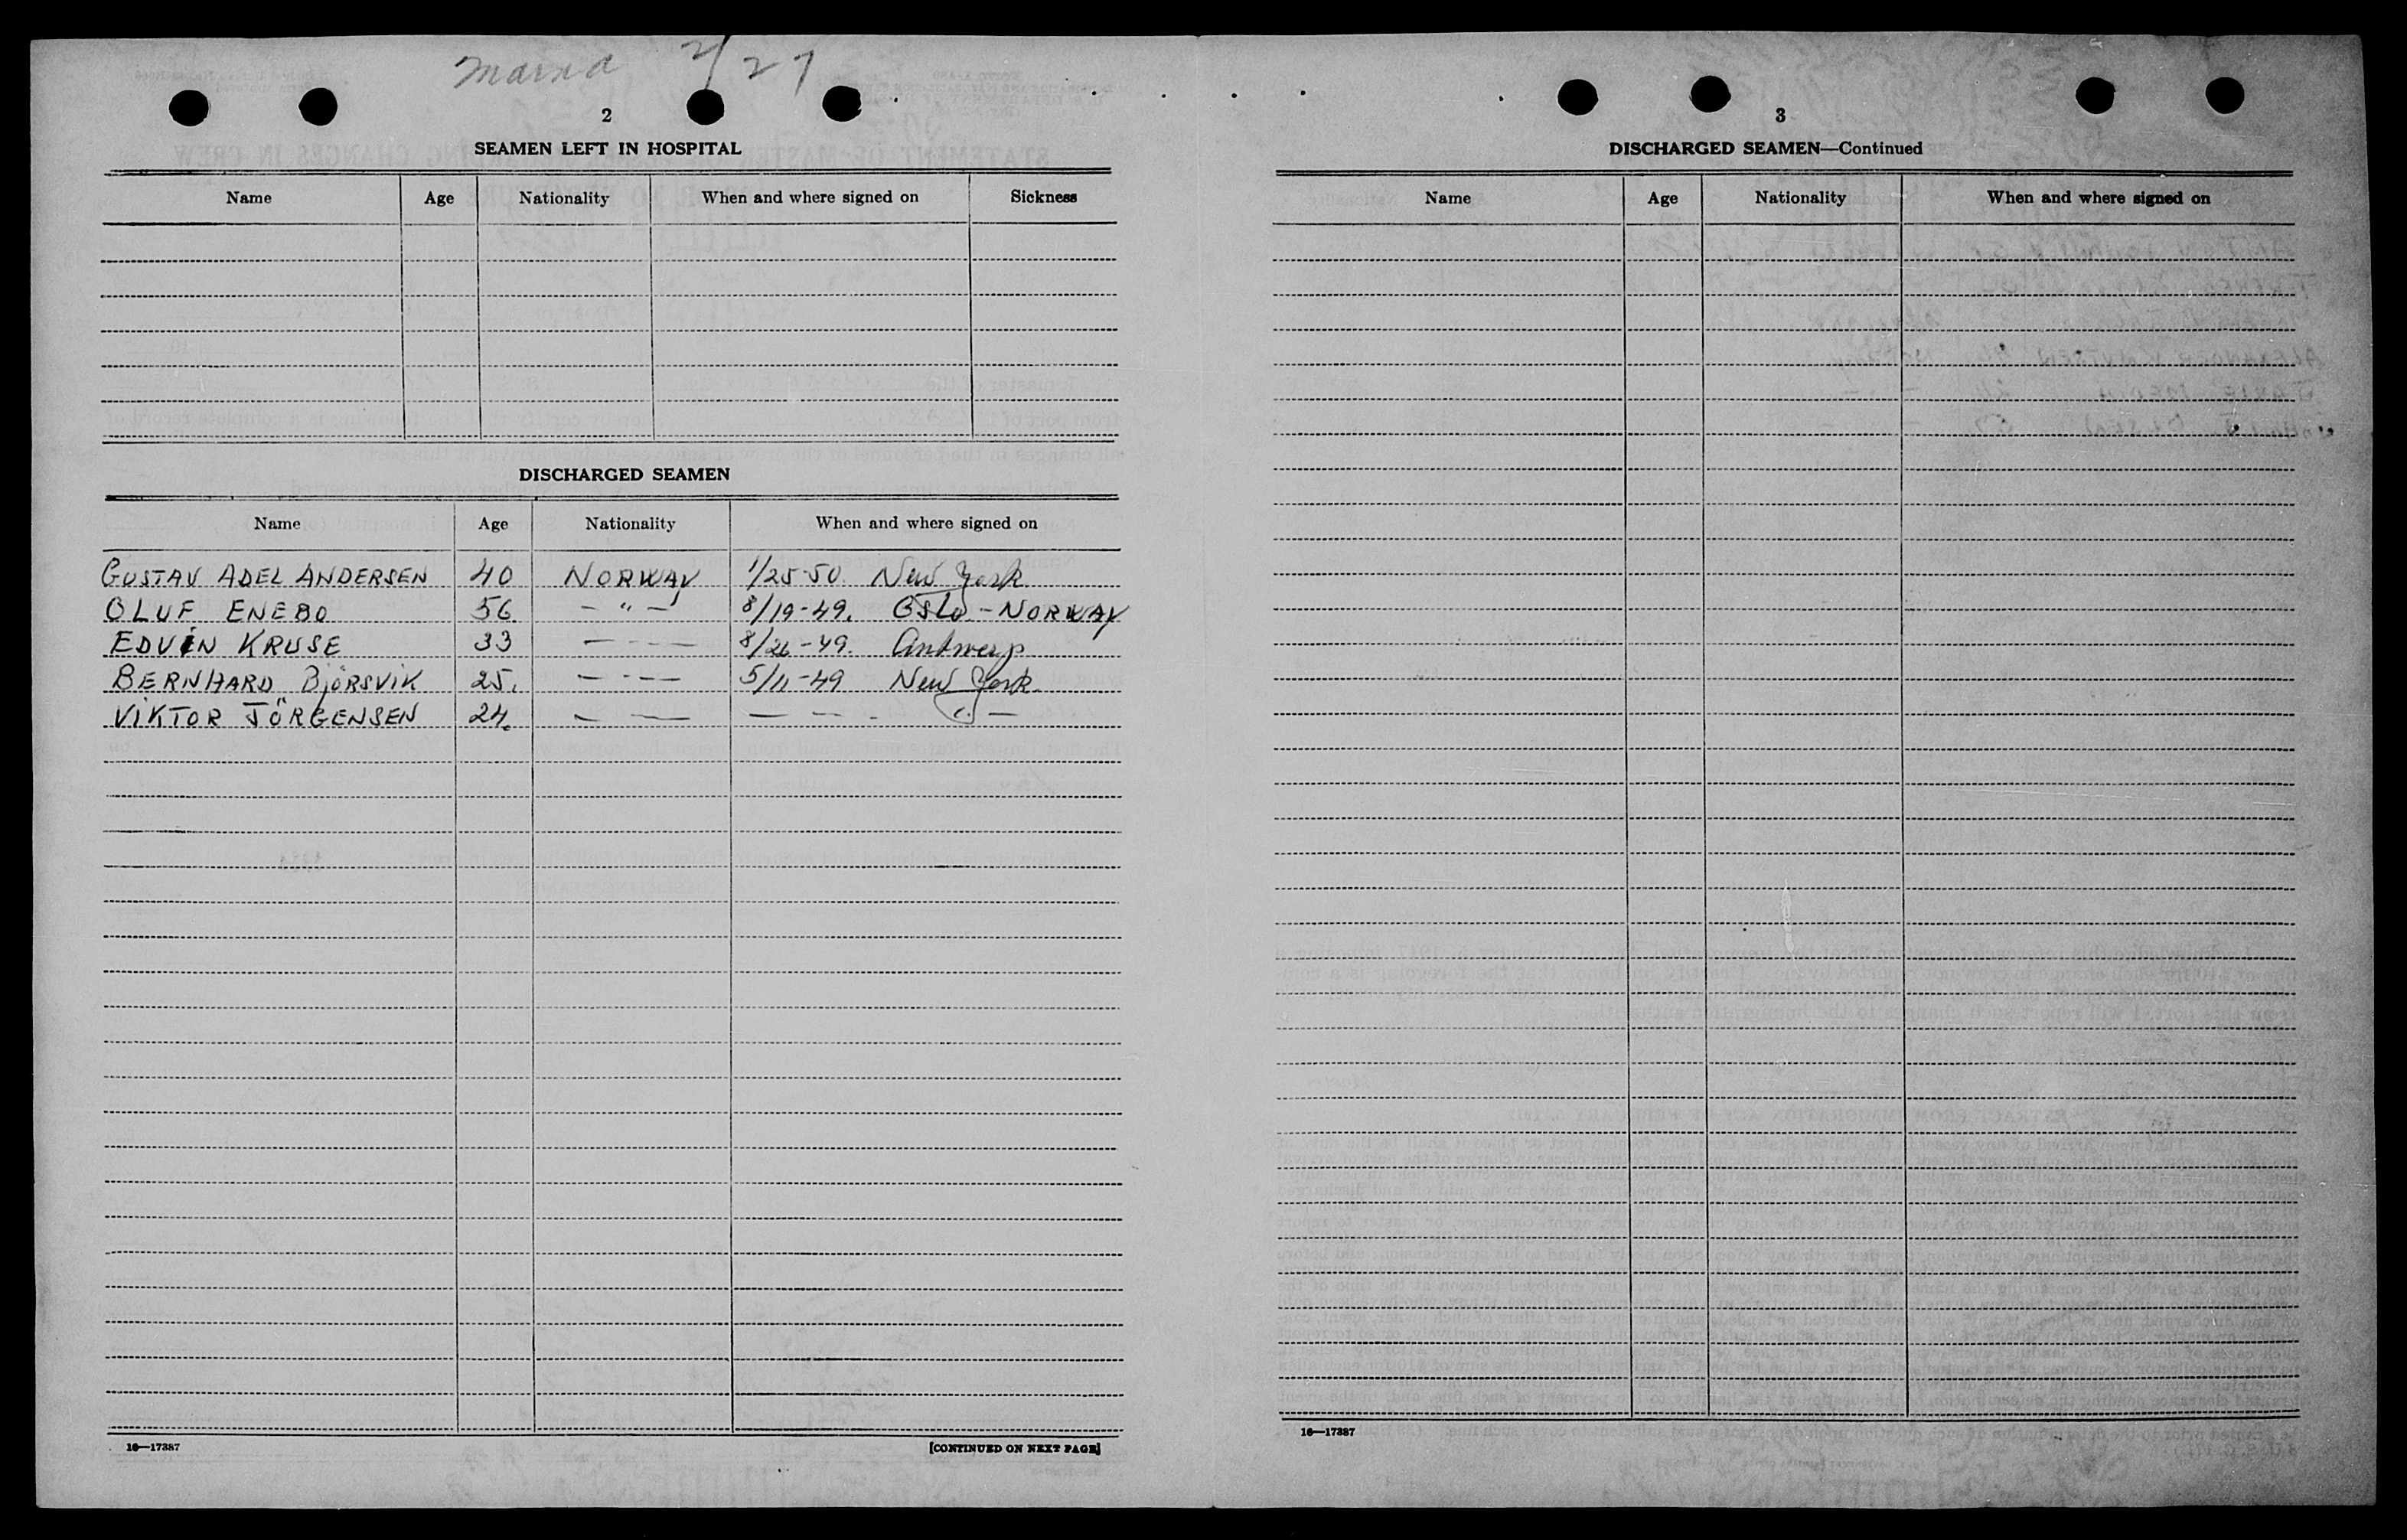 Marna 2/27
2
SEAMEN LEFT IN HOSPITAL
Name Age Nationality When and where signed on Sickness
DISCHARGED SEAMEN
Name Age Nationality When and where signed on
GUSTAV ADEL ANDERSEN 40 NORWAY 1/25-50. New York
OLUF ENEBO 56 — " — 8/19-49. Oslo - NORWAY
EDVIN KRUSE 33 — — 8/26-49. Antwerp
BERNHARD BJÖRSVIK 25. — - — 5/11-49 New York
VIKTOR JÖRGENSEN 24. — — — — - " —
16—17387 [CONTINUED ON NEXT PAGE]
3
DISCHARGED SEAMEN—Continued
Name Age Nationality When and where signed on
16—17387